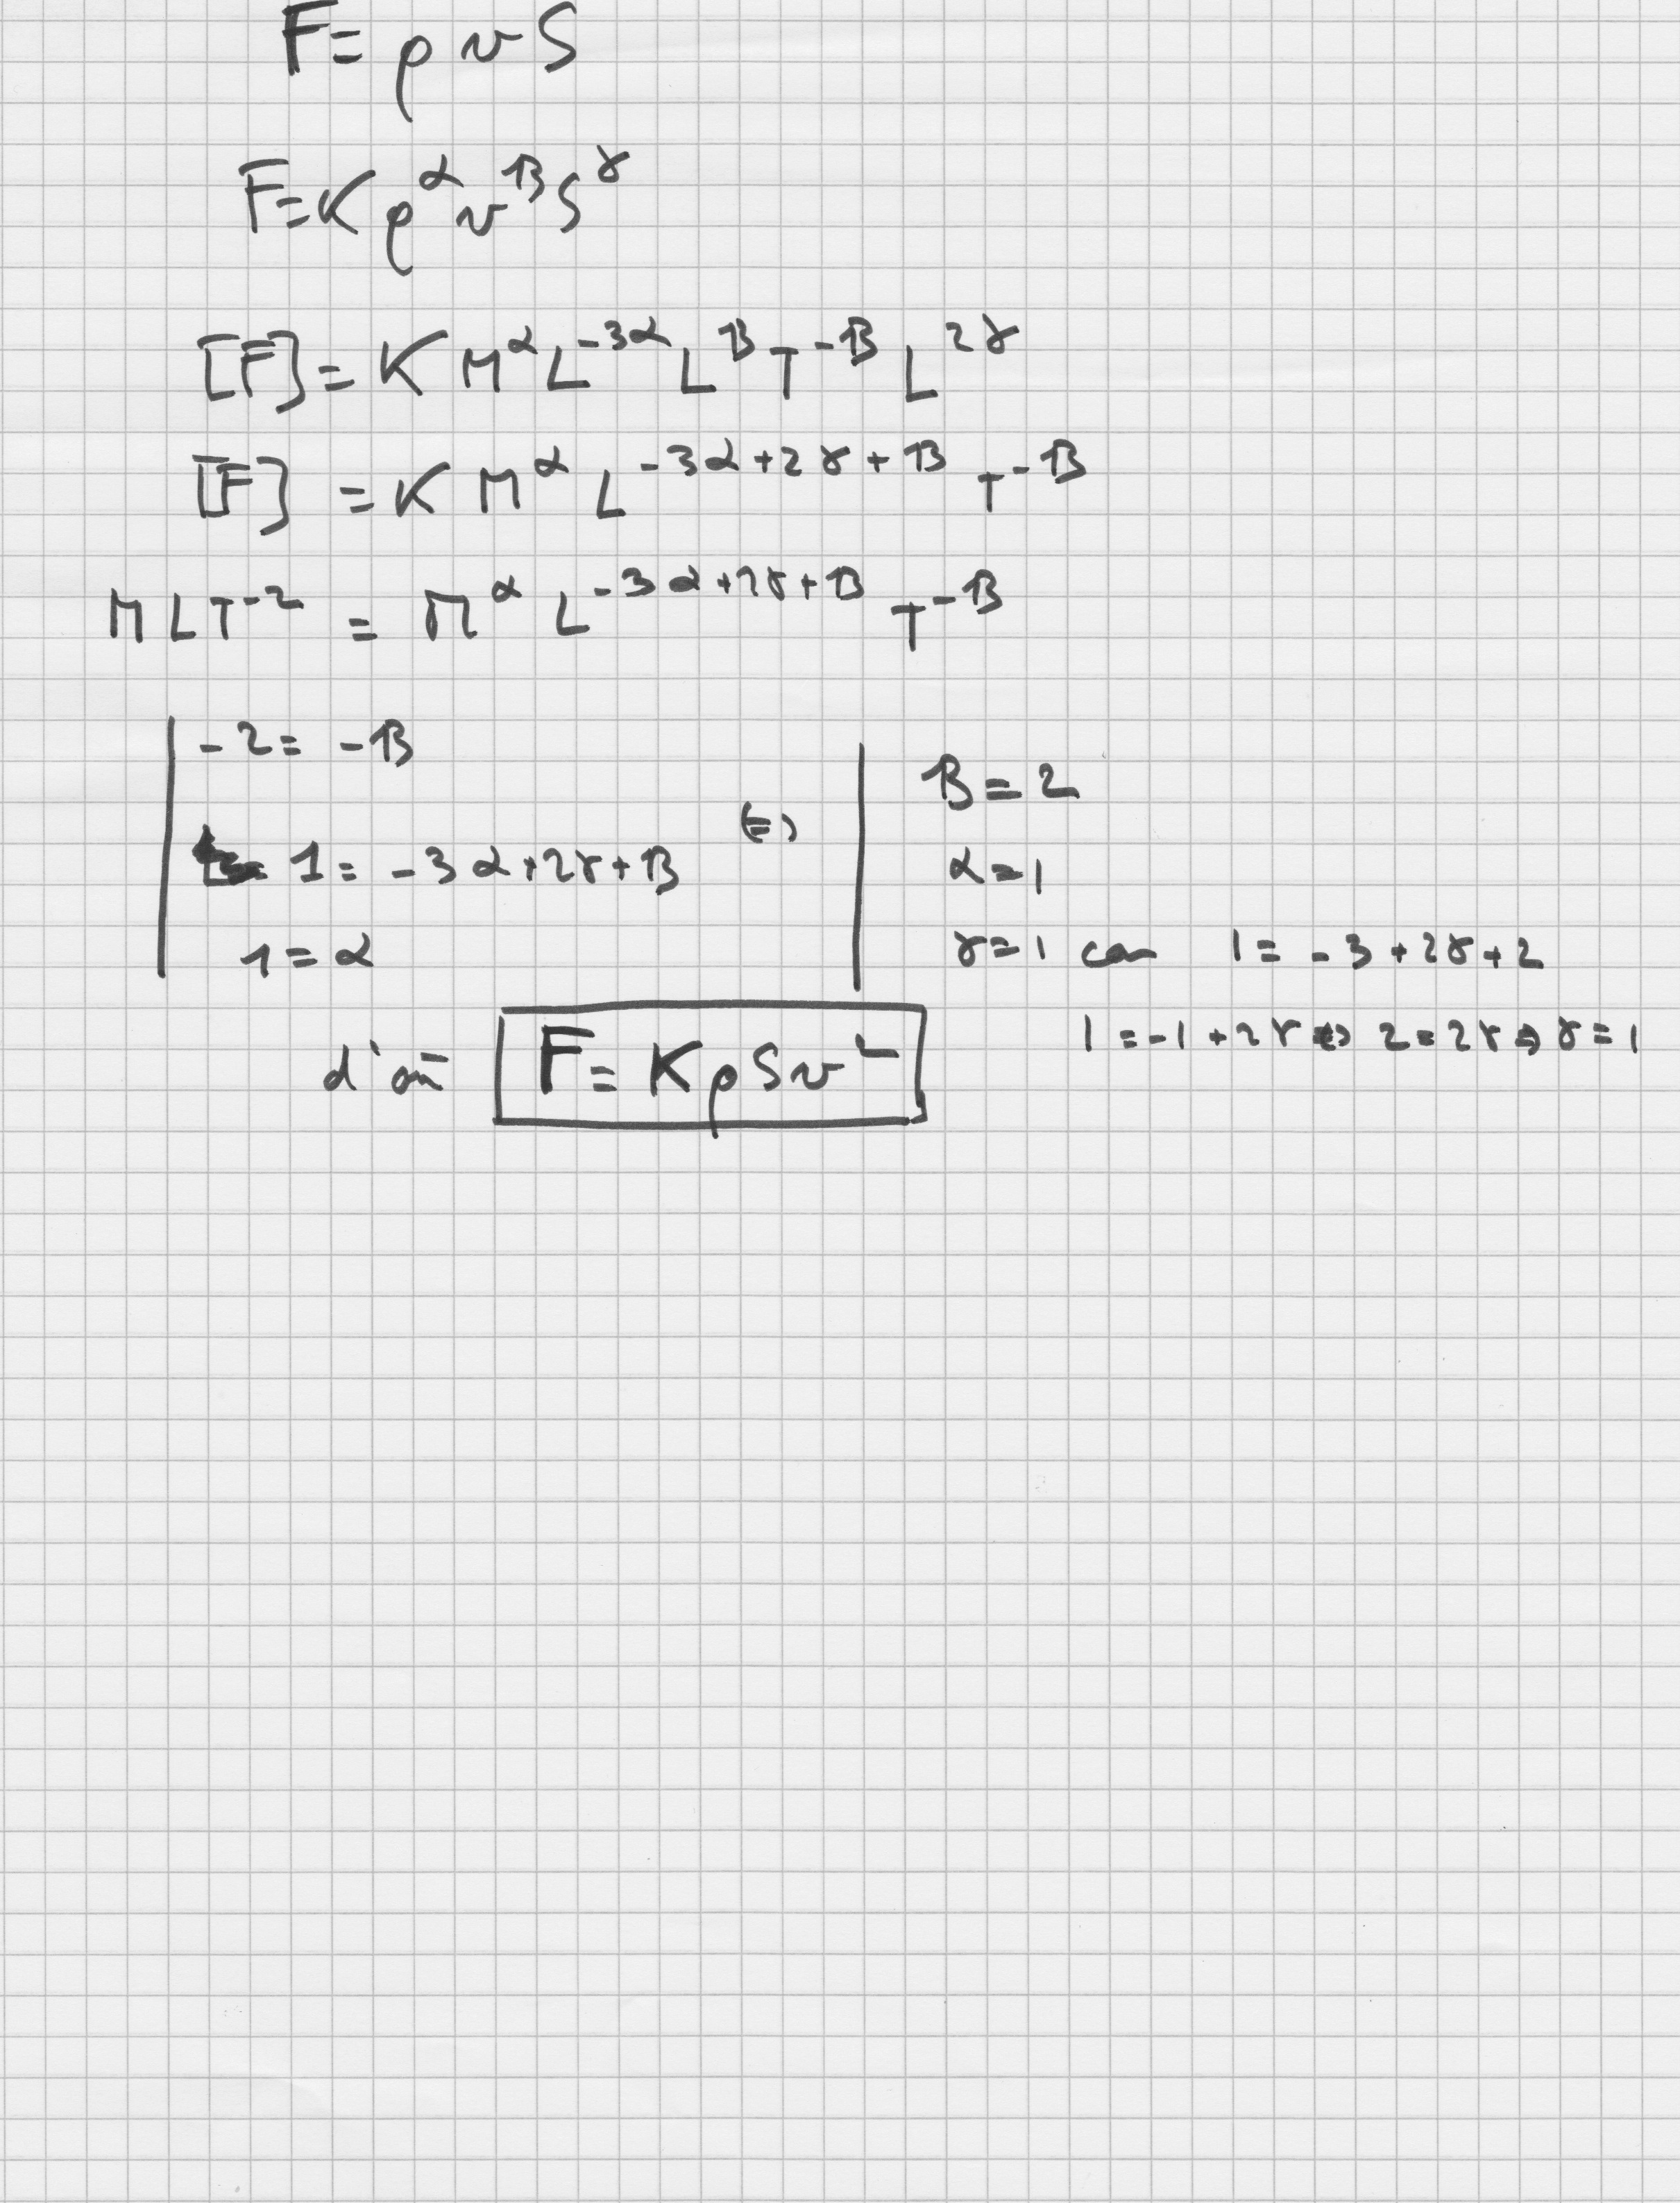 F = ρ v S
F = K ρ^α v^β S^γ
[F] = K M^α L^-3α L^β T^-β L^2γ
[F] = K M^α L^-3α+2γ+β T^-β
M L T^-2 = M^α L^-3α+2γ+β T^-β
-2 = -β
1 = -3α+2γ+β
1 = α
⇔
β = 2
α = 1
γ = 1 car 1 = -3+2γ+2
1 = -1+2γ ⇔ 2 = 2γ ⇒ γ = 1
d'où F = K ρ S v^2